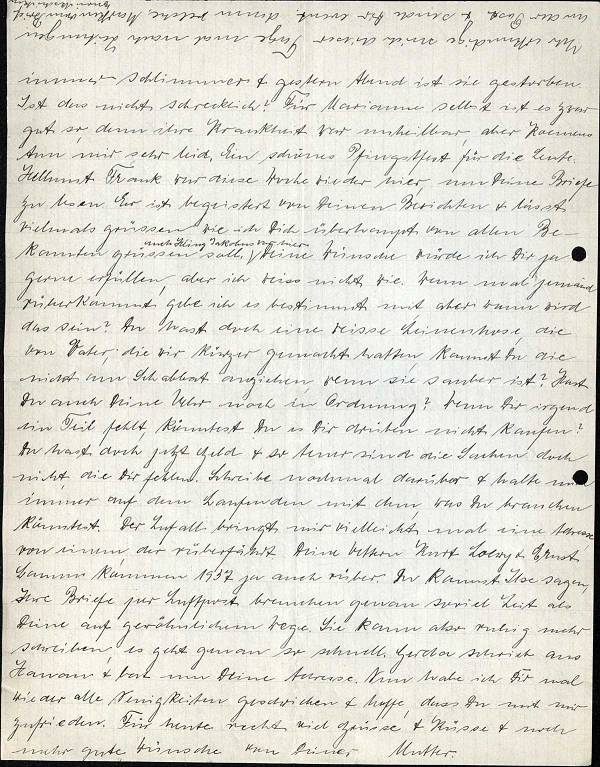 immer schlimmer & gestern Abend ist sie gestorben.
Ist das nicht schrecklich? Für Marianne selbst ist es zwar
gut so, denn ihre Krankheit war unheilbar, aber
tun mir sehr leid. Ein schönes Pfingstfest für die Leute.
Hellmut Frank war diese Woche wieder hier, um Deine Briefe
zu lesen. Er ist begeistert von Deinen Berichten & lässt
vielmals grüssen wie ich Dich überhaupt von allen Be-
kannten grüssen soll, Deine Wünsche würde ich Dir ja
gerne erfüllen, aber ich weiss nicht wie. Wenn mal jemand
rüberkommt gebe ich es bestimmt mit, aber wann wird
das sein? Du hast doch eine weisse Leinenhose, die
von Vater, die wir kürzer gemacht hatten, kannst Du die
nicht am Schabbat anziehen wenn sie sauber ist? Hast
Du auch Deine Uhr noch in Ordnung? Wenn Dir irgend
ein Teil fehlt, könntest Du es Dir drüben nicht kaufen?
Du hast doch jetzt Geld & so teuer sind die Sachen doch
nicht die Dir fehlen. Schreibe nochmal darüber & halte mich
immer auf dem Laufenden mit dem was Du brauchen
könntest. Der Zufall bringt mir vielleicht mal eine Adresse
von einem der rüberfährt. Deine Vettern Kurt & Ernst
kommen 1937 ja auch rüber. Du kannst Ilse sagen,
Ihre Briefe per Luftpost brauchen genau soviel Zeit als
Deine auf gewöhnlichem Wege. Sie kann also ruhig mehr
schreiben, es geht genau so schnell. Gerda schrieb aus
& bat um Deine Adresse. Nun habe ich Dir mal
wieder alle Neuigkeiten geschrieben & hoffe, dass Du mit mir
zufrieden. Für heute recht viel Grüsse & Küsse & noch
mehr gute Wünsche von Deiner Mutter.